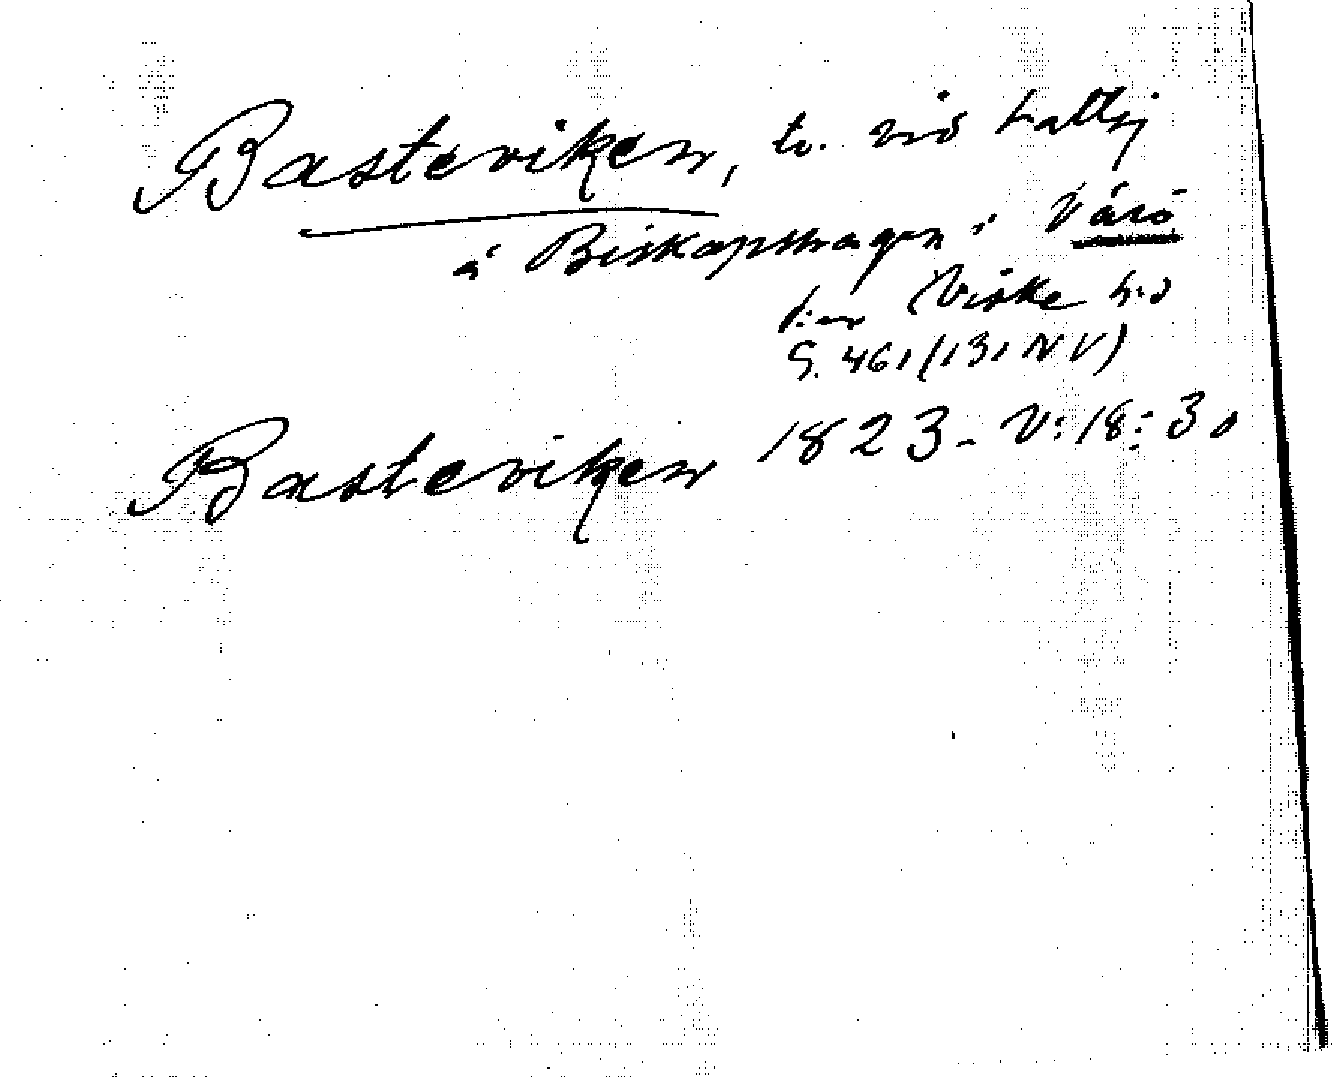 Basteviken, tv. vid kattij
å Biskopshagen i Värö
s:n Viske hd
G. 461 (131 NV)
Basteviken 1823 - V:18:30